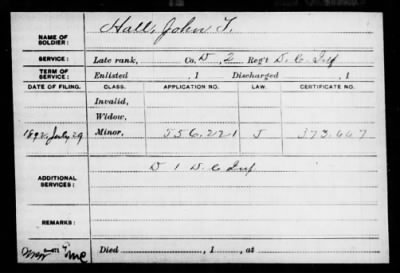 NAME OF SOLDIER: Hall, John T.
SERVICE: Late rank, Co. D, 2 Reg't D. C. Inf
TERM OF SERVICE: Enlisted , 1 Discharged , 1
DATE OF FILING. CLASS. APPLICATION NO. LAW. CERTIFICATE NO.
Invalid,
Widow,
1892, July 29 Minor, 556.221 J 373.447
ADDITIONAL SERVICES: D 1 D. C. Inf
REMARKS:
Died , 1 , at